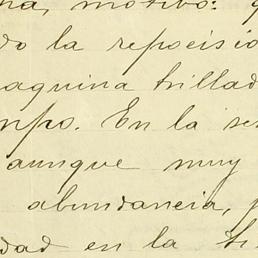 motivo:
do la repocisio
aquina trillad
mpo. En la se
aunque muy
abundancia,
dad en la tri